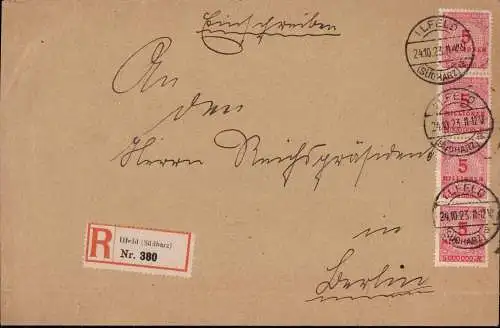 Einschreiben
An
den
Herrn Reichspräsident
in
Berlin
R
Ilfeld (Südharz)
Nr. 380
ILFELD
24.10.23.11-12V
(SÜDHARZ)
5
ILFELD
24.10.23.11-12V
(SÜDHARZ)
5
MILLIONEN
5
MILLIONEN
ILFELD
24.10.23.11-12V
(SÜDHARZ)
5
5000000